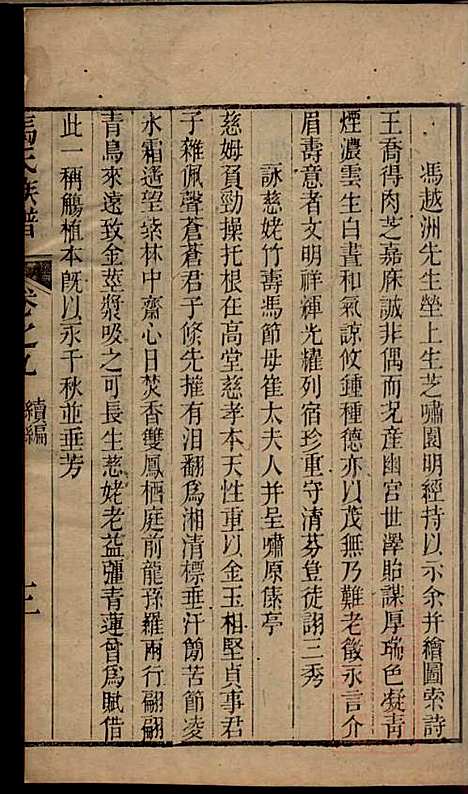 馮越洲先生塋上生芝嘯園明經持以示余并繪圖索詩
王喬得肉芝嘉庥誠非偶而況產幽宮世澤貽謀厚瑞色凝青
煙濃雲生白晝和氣諒攸鍾種德亦以茂無乃難老徵永言介
眉壽意者文明祥輝光耀列宿珍重守清芬豈徒詡三秀
詠慈姥竹壽馮節母崔太夫人并呈嘯原傣亭
慈姆負勁操托根在高堂慈孝本天性重以金玉相堅貞事君
子雜佩聲蒼蒼君子條先摧有泪翻為湘清標垂汗簡苦節凌
冰霜遙望棻林中齋心日焚香雙鳳栖庭前龍孫羅兩行翩翩
青鳥來遠致金莖漿吸之可長生慈姥老益彊青蓮曾為賦借
此一稱觴植本旣以永千秋並垂芳
馮氏族譜
卷之九
續編